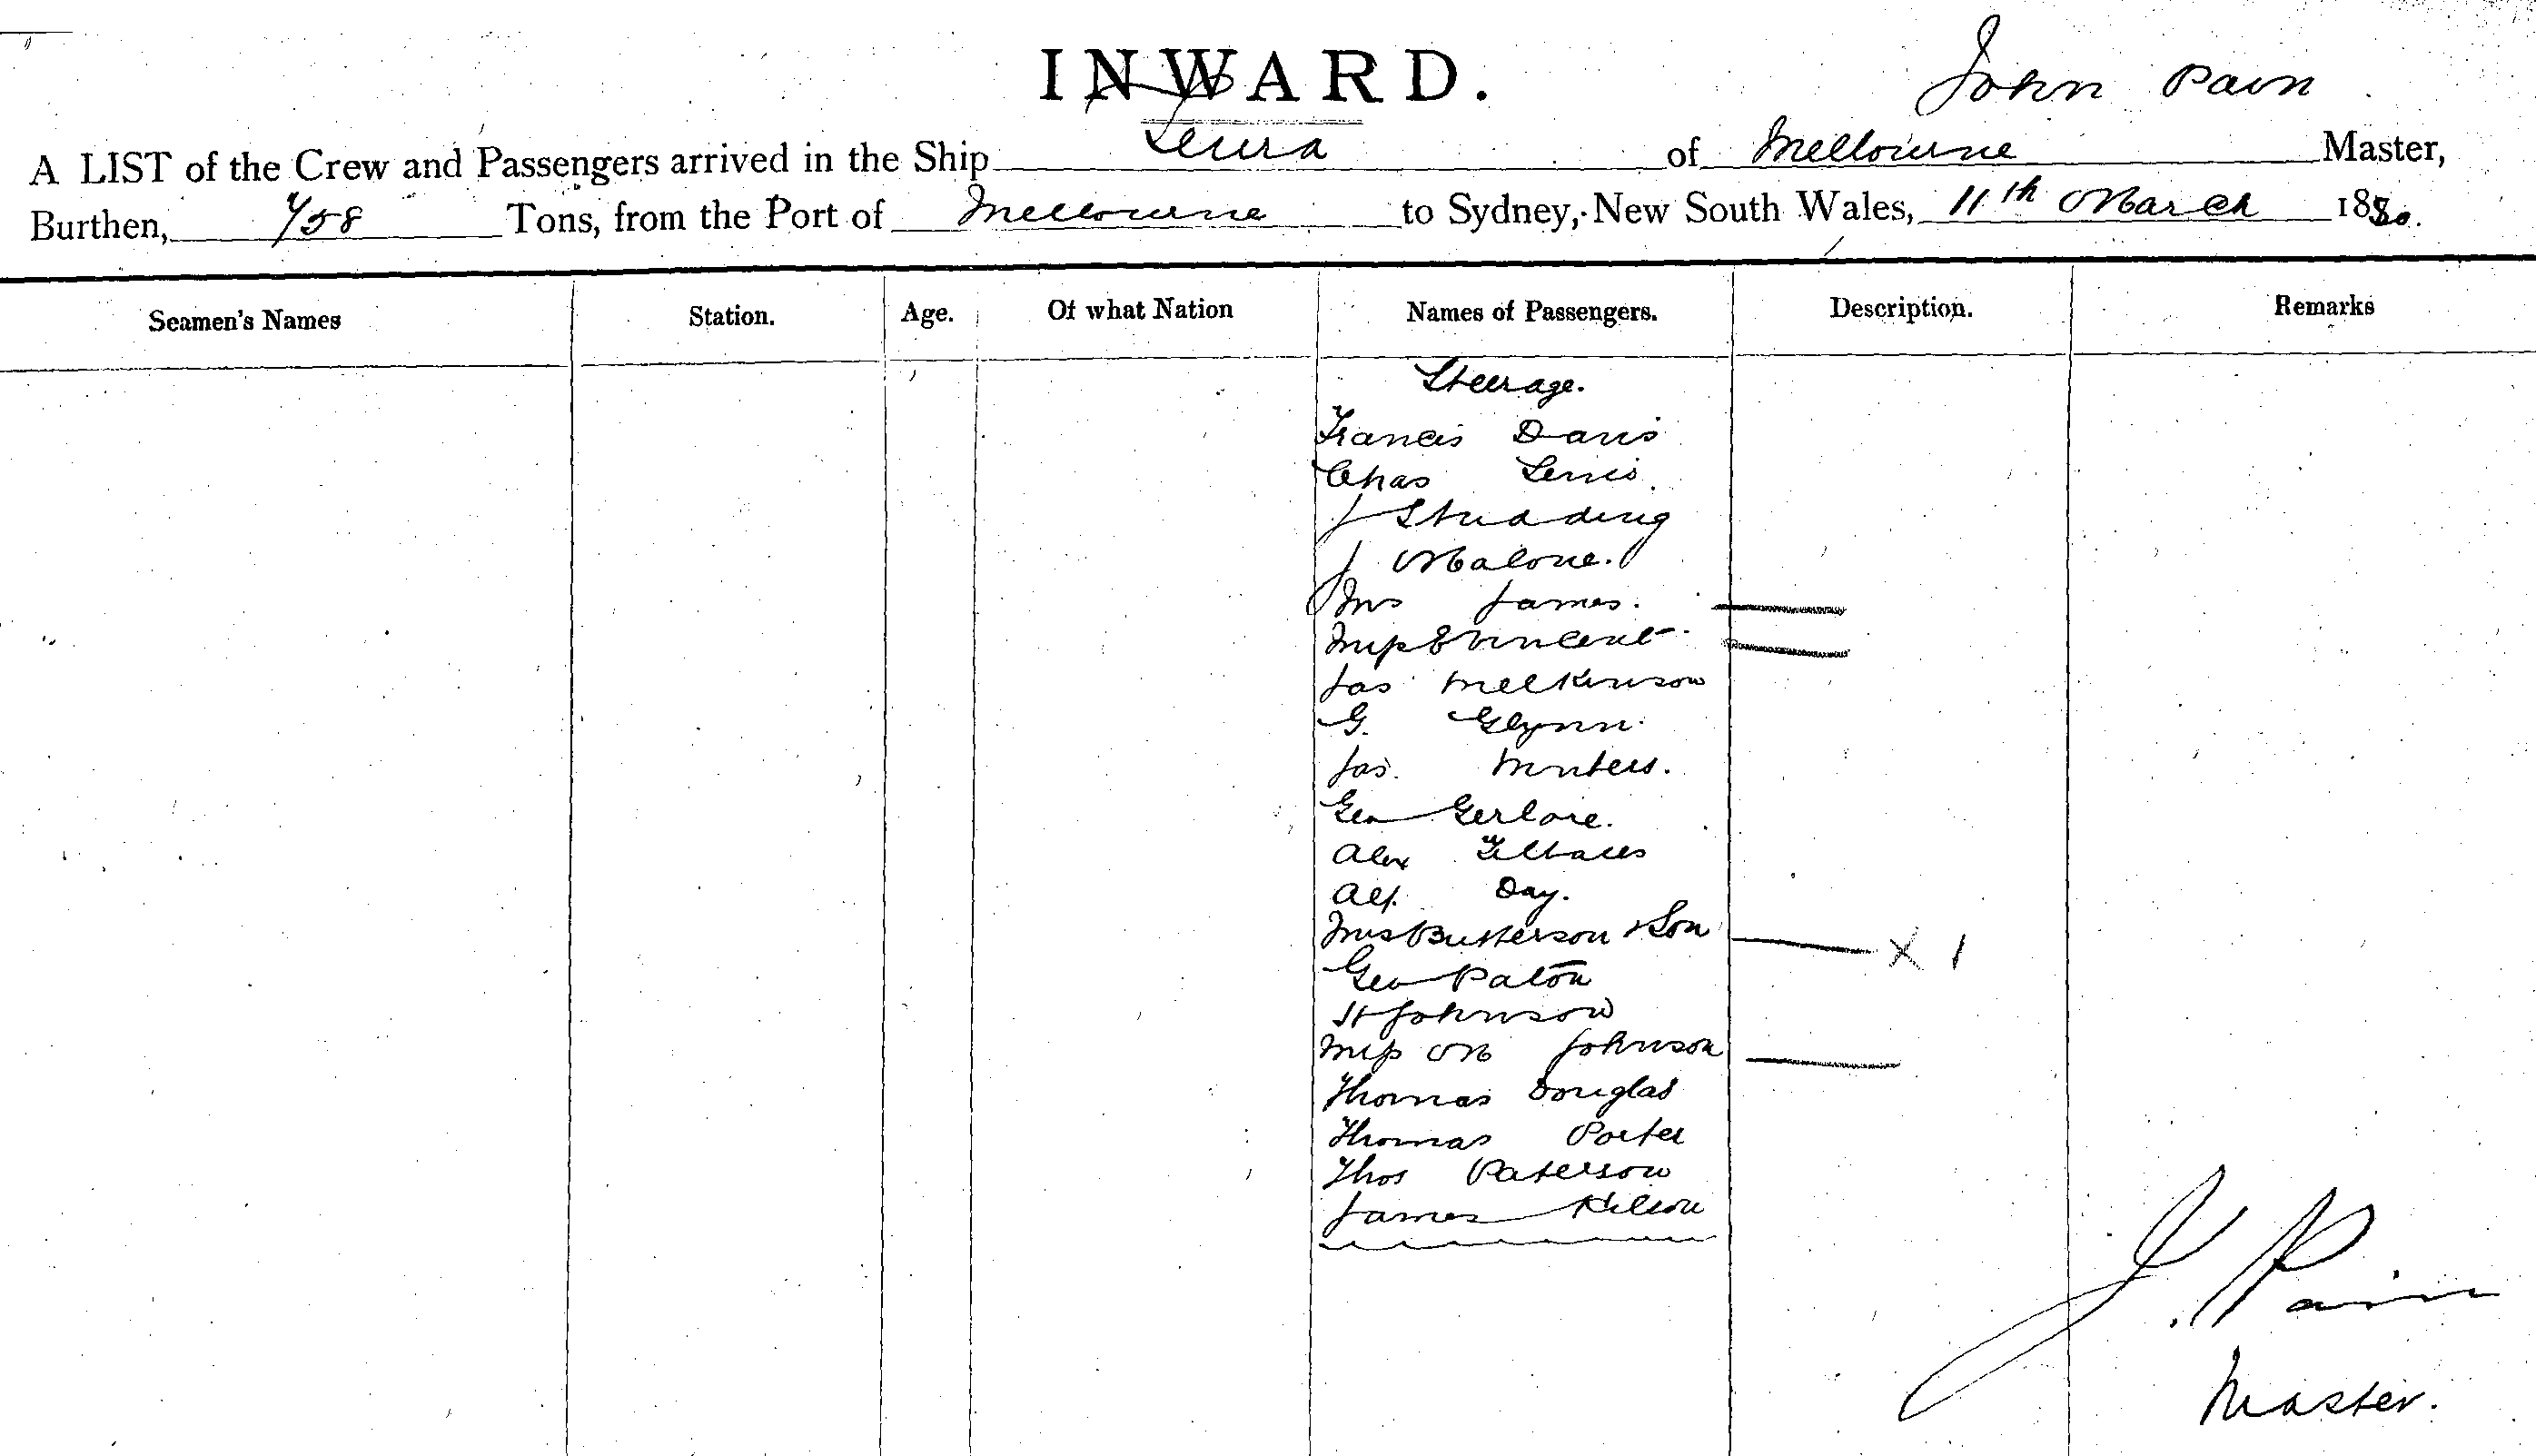 INWARD.
John Pain
A LIST of the Crew and Passengers arrived in the Ship Leura of Melbourne Master,
Burthen, 758 Tons, from the Port of Melbourne to Sydney, New South Wales, 11th March 1880.
Seamen's Names Station. Age. Of what Nation Names of Passengers. Description. Remarks
Steerage.
Francis Davis
Chas Lewis
J Studding
J Malone.
Mrs James.
Miss E Vincent
Jas Melkinson
G. Glynn
Jas. Winters.
Geo
Alex
Alf. Day.
Mrs Butterson & Son X 1
Geo Paton
H Johnson
Miss M Johnson
Thomas Douglas
Thomas Porter
Thos Paterson
James Wilson
J. Pain
Master.